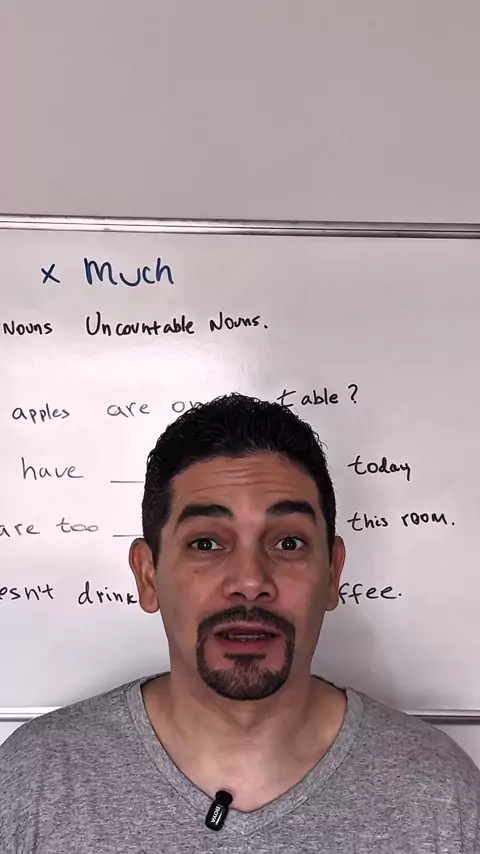 x Much
Nouns Uncountable Nouns.
apples are on table?
have ___ today
are too ___ this room.
esn't drink ffee.
BOYA